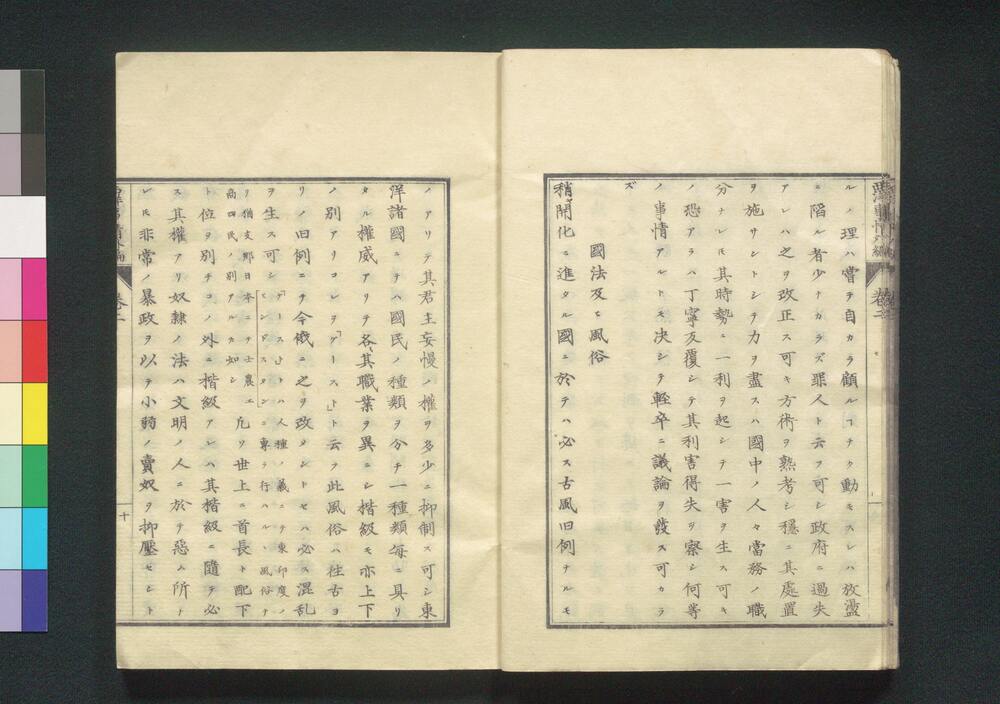 ルノ理ハ嘗テ自カラ顧ルヿナク動モスレハ放盪
ニ陥ル者少ナカラズ罪人ト云フ可シ政府ニ過失
アレハ之ヲ改正ス可キ方術ヲ熟考シ穏ニ其處置
ヲ施サントシテ力ヲ盡スハ國中ノ人々當務ノ職
分ナレ𪜈其時勢ニ一利ヲ起シテ一害ヲ生ス可キ
ノ恐アラハ丁寧反覆シテ其利害得失ヲ察シ何等
ノ事情アルトモ决シテ軽卒ニ議論ヲ發ス可カラ
ズ
國法及ヒ風俗
稍開化ニ進タル國ニ於テハ必ス古風旧例ナルモ
ノアリテ其君主妄慢ノ權ヲ多少ニ抑制ス可シ東
洋諸國ニテハ國民ノ種類ヲ分チ一種類毎ニ具リ
タル權威アリテ各其職業ヲ異ニシ揩級モ亦上下
ノ別アリコレヲ「ゲースト」ト云フ此風俗ハ往古ヨ
リノ旧例ニテ今俄ニ之ヲ改メントセハ必ス混乱
ヲ生ス可シ「ゲースト」トハ人種ノ義ニテ東印度ノ
ヒンドスタンニ專ラ行ハルヽ風俗ナ
リ猶支那日本ニテ士農工
商四民ノ別アルカ如シ凡ソ世上ニ首長ト配下
ト位ヲ別チコノ外ニ揩級アレハ其揩級ニ隨テ必
ス其權アリ奴隷ノ法ハ文明ノ人ニ於テ惡ム所ナ
レ𪜈非常ノ暴政ヲ以テ小弱ノ賣奴ヲ抑壓セント
卷二
十